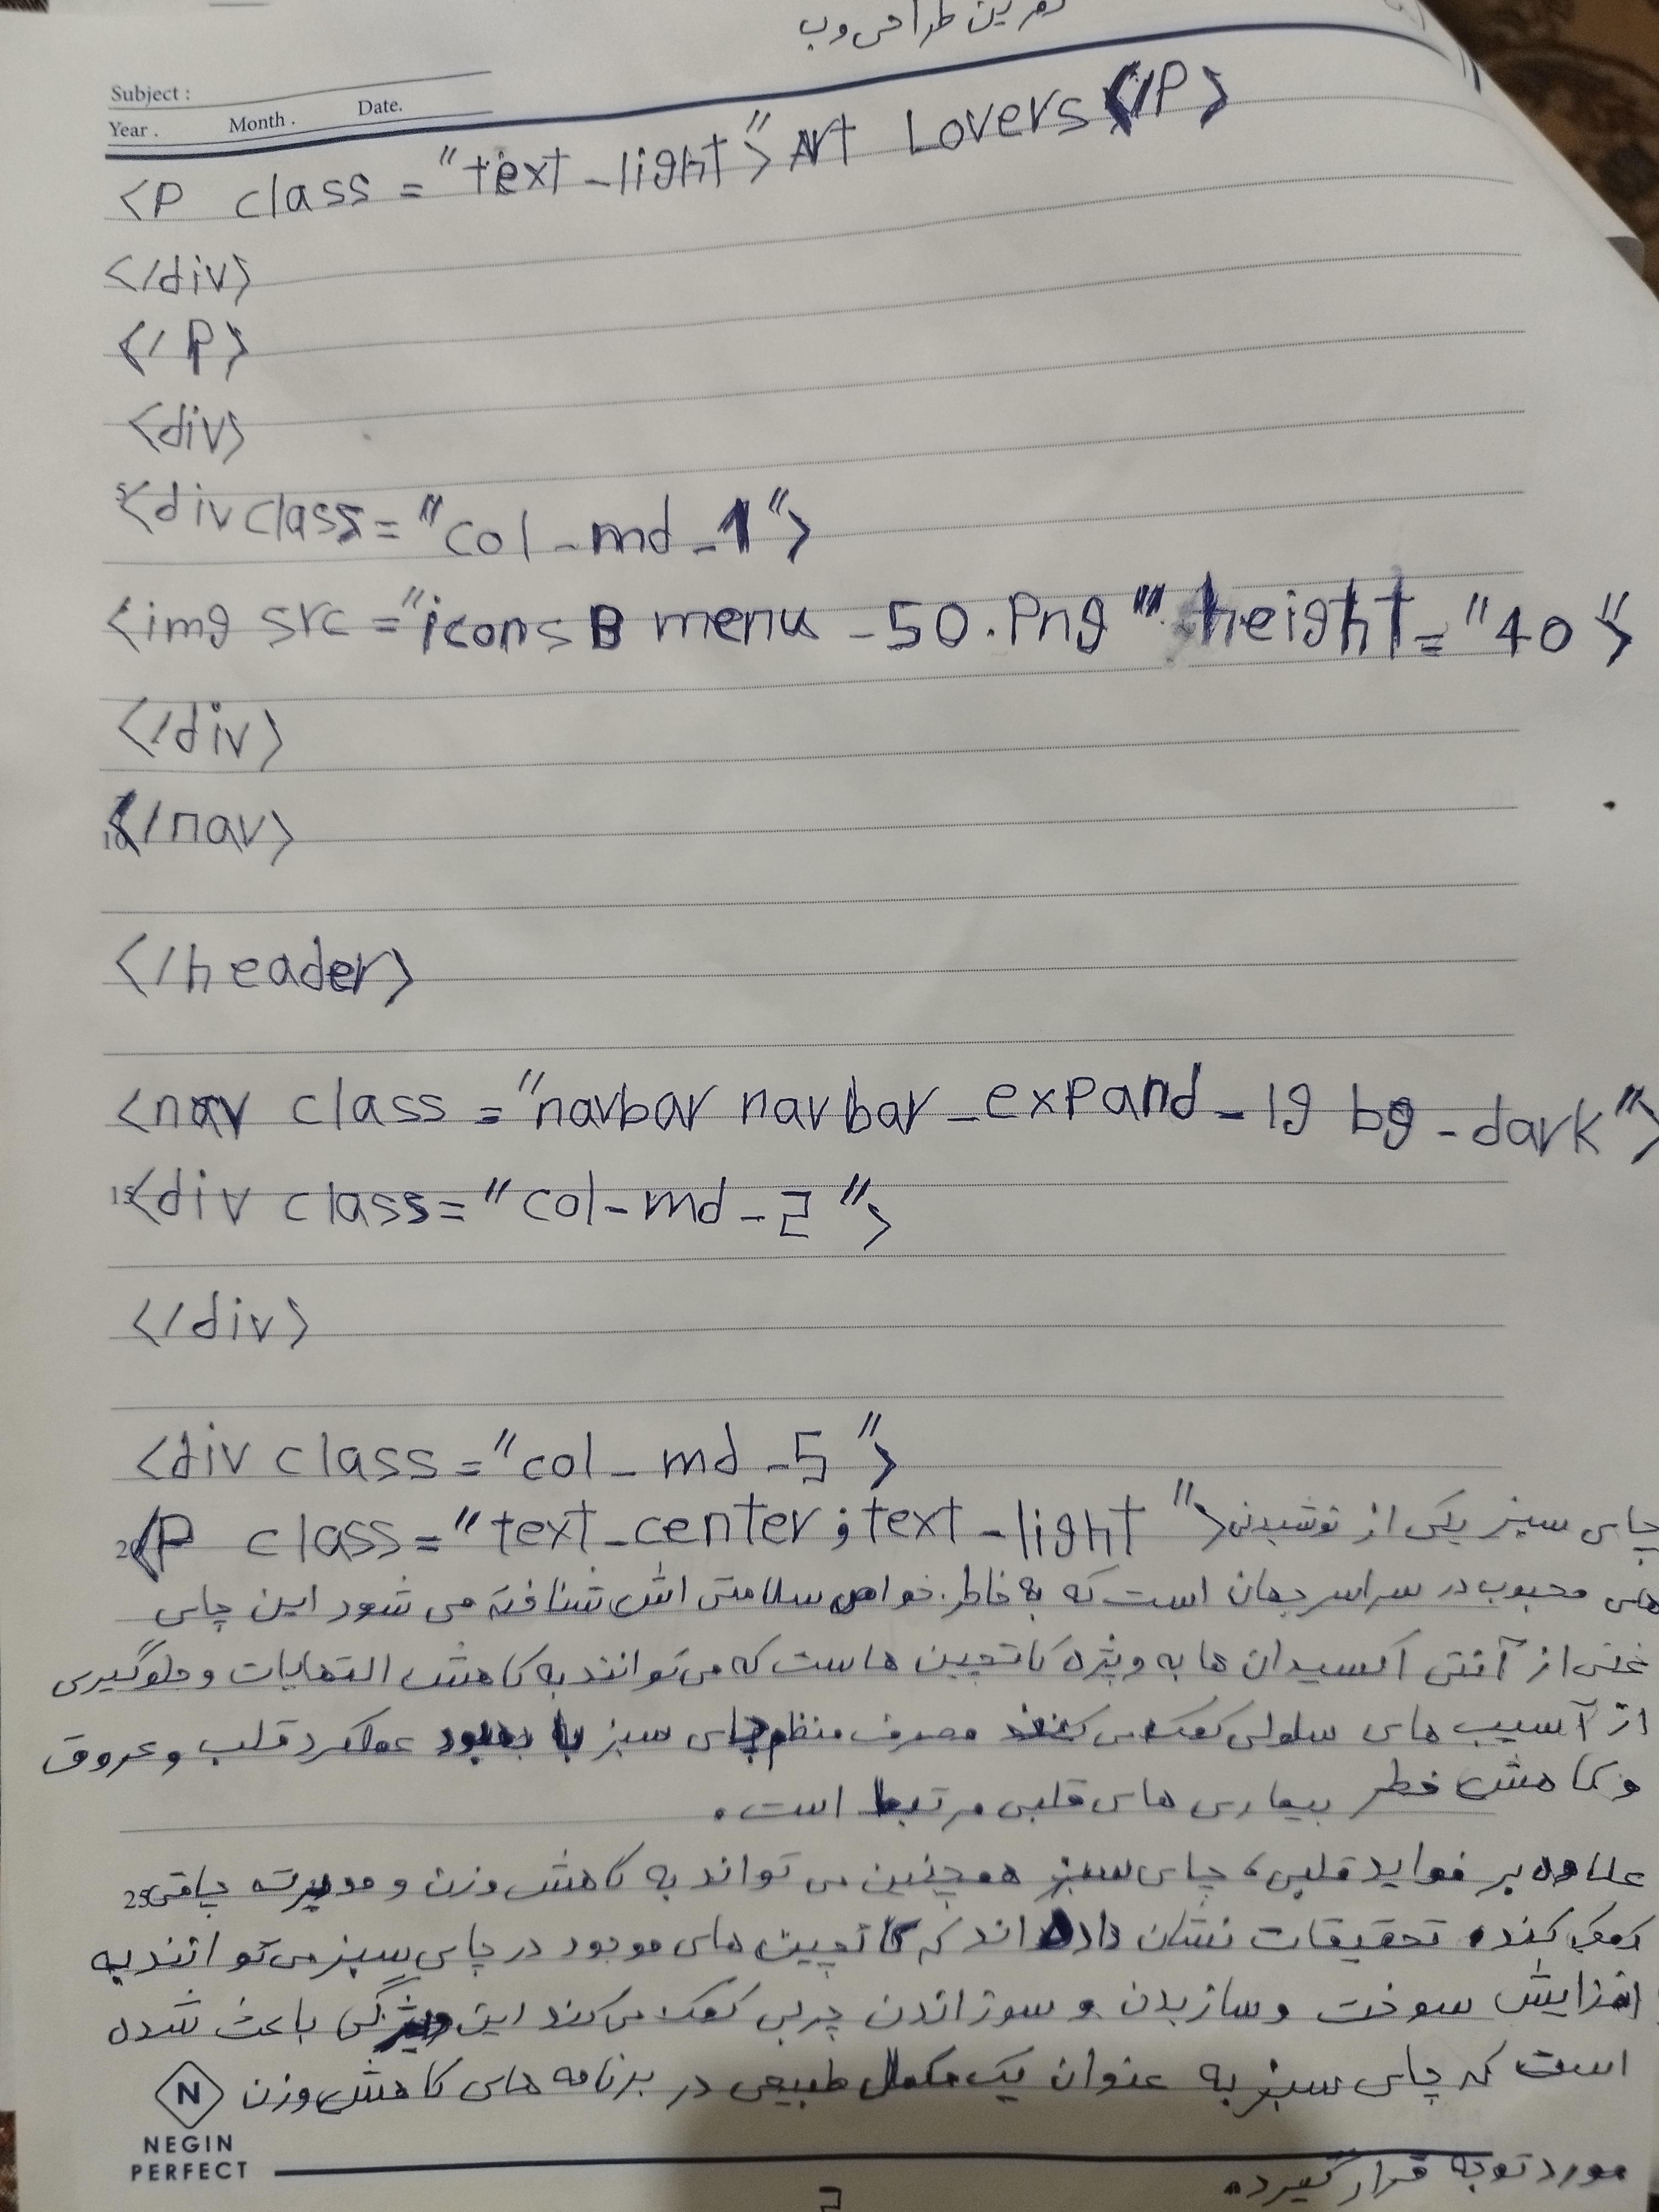 تمرین طراحی وب
Subject :
Year . Month . Date.
<P class = "text_light"> Art Lovers </P>
</div>
</P>
<div>
5 <div class = "col_md_1">
<img src = "icons8 menu _50.Png" height = "40">
</div>
10 </nav>
</header>
<nav class = "navbar navbar_expand_lg bg_dark">
15 <div class = "col_md_2">
</div>
<div class = "col_md_5">
20 <P class = "text_center ; text_light"> چای سبز یکی از نوشیدنی
های محبوب در سراسر جهان است که به خاطر خواص سلامتی اش شناخته می شود این چای
غنی از آنتی اکسیدان ها به ویژه کاتچین هاست که می توانند به کاهش التهابات و جلوگیری
از آسیب های سلولی کمک می کنند مصرف منظم چای سبز با بهبود عملکرد قلب و عروق
و کاهش خطر بیماری های قلبی مرتبط است.
علاوه بر فواید قلبی، چای سبز همچنین می تواند به کاهش وزن و مدیریت چاقی 25
کمک کند. تحقیقات نشان داده اند که کاتچین های موجود در چای سبز می توانند به
افزایش سوخت و ساز بدن و سوزاندن چربی کمک می کند این ویژگی باعث شده
است که چای سبز به عنوان یک مکمل طبیعی در برنامه های کاهش وزن
مورد توجه قرار گیرد.
N
NEGIN
PERFECT
2